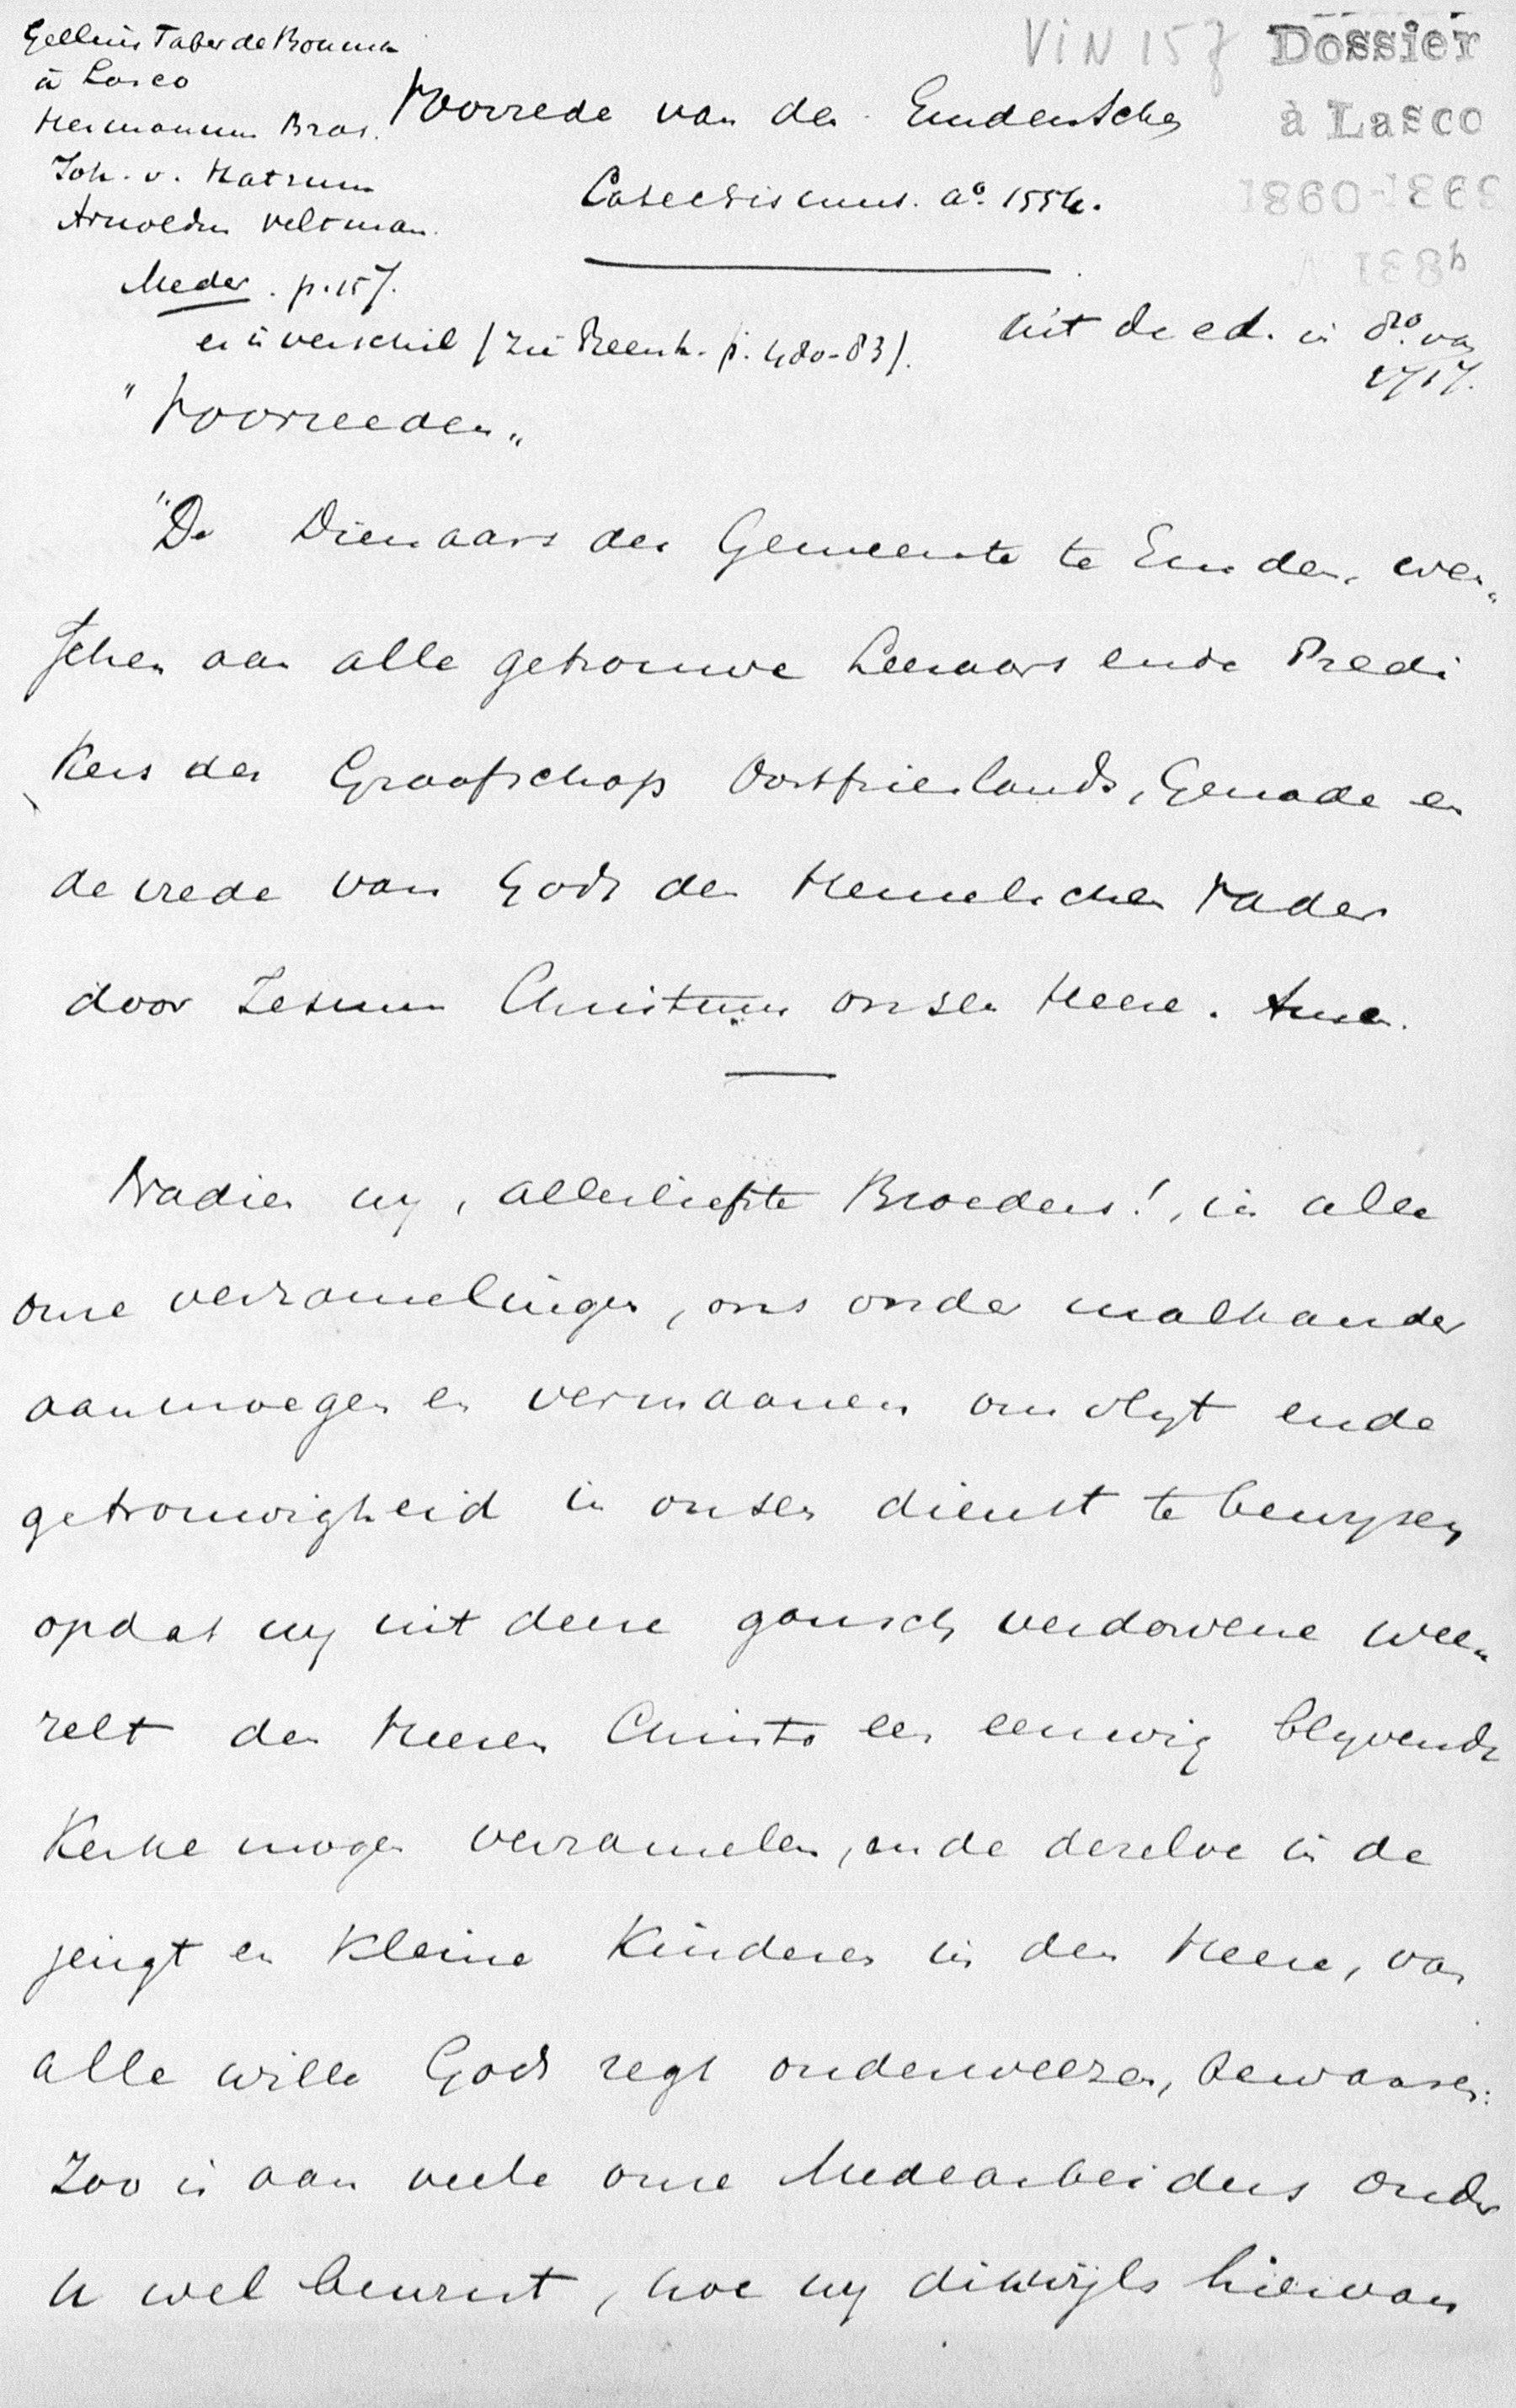 Gellius Faber de Bouma
à Lasco
Hermannus Bras.
Joh. v. Hatzum
Arnoldus Veltman.
Meder. p. 157.
er is verschil (zie Reersh. p. 480-83).
VIN 157
Dossier
à Lasco
1860-1863
Voorrede van den Emdenschen
Catechismus. a° 1554.
uit de ed. in 8vo. van
1717.
"Voorreeden„
"De Dienaars der Gemeente te Emden, wen„
schen aan alle getrouwe Leeraars ende Predi
kers der Graafschap Oostfrieslands, Genade en
de vrede van Godt den Hemelschen Vader
door Jesum Christum onsen Heere. Amen.
Nadien wy, allerliefste Broeders!, in alle
onse verzamelingen, ons onder malkander
aanmoegen en vermaanen om vlyt ende
getrouwigheid in onsen dienst te bewysen
opdat wy uit dese gansch verdorvene wee„
relt den Heeren Christo een eeuwig blyvende
Kerke mogen verzamelen, ende derselve in de
jeugt en kleine Kinderen in den Heere, van
alle wille Gods regt onderweezen, bewaaren:
Zoo is aan veele onse Medearbeiders onder
U wel bewust, hoe wy dikwijls hiervan